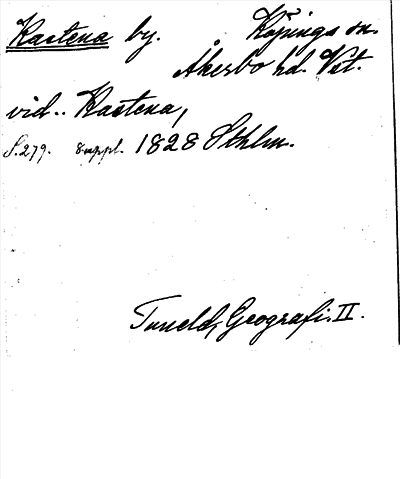 Kastena by. Köpings sn.
Åkerbo hd. Vst.
vid.. Kastena,
S.279. 8 uppl. 1828 Sthlm.
Tuneld, Geografi. II.